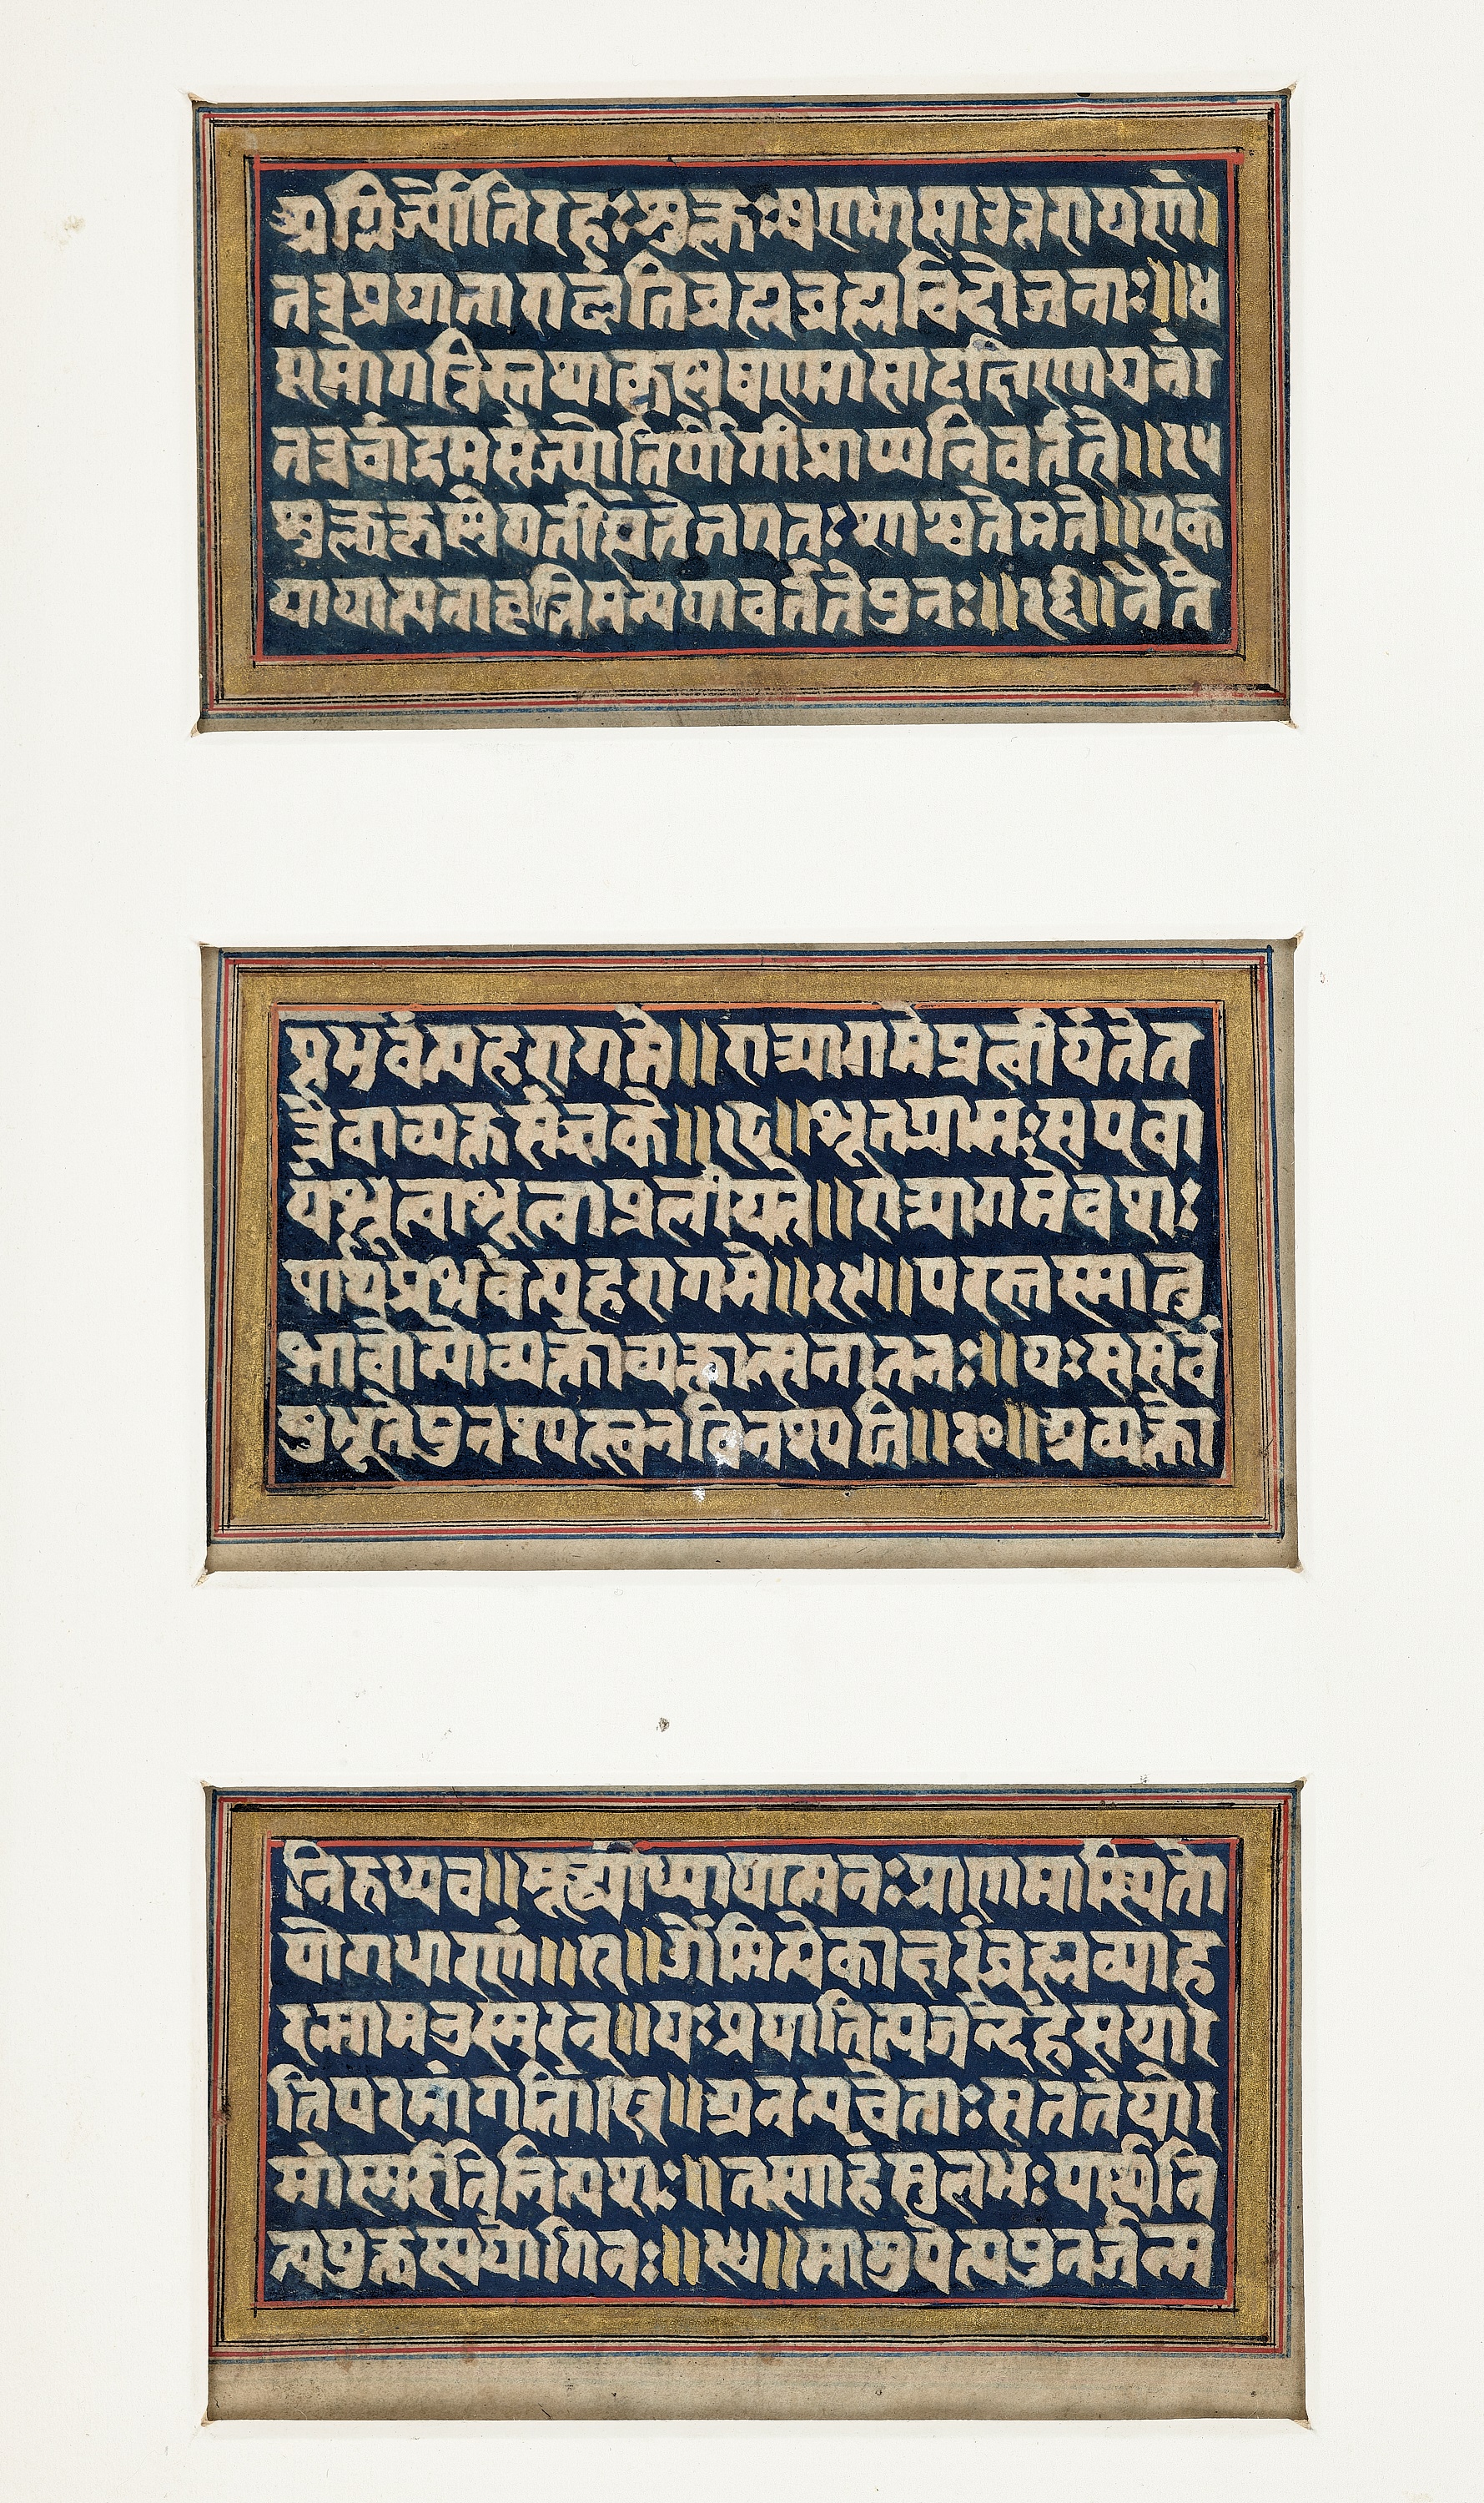 अग्निर्ज्योतिरहःशुक्लःषण्मासाउत्तरायणं।
तत्रप्रयातागछंतिब्रह्मब्रह्मविदोजनाः॥४
धूमोरात्रिस्तथाकृष्णषण्मासादक्षिणायनं।
तत्रचांद्रमसंज्योतिर्योगीप्राप्यनिवर्तते॥२५
शुक्लकृष्णेगतीह्येतेजगतःशाश्वतेमते॥एक
यायात्यनावृत्तिमन्ययावर्ततेपुनः॥२६॥नेते
प्रभवंत्यहरागमे॥रात्र्यागमेप्रलीयंतेत
त्रैवाव्यक्तसंज्ञके॥१८॥भूतग्रामःसएवा
यंभूत्वाभूत्वाप्रलीयते॥रात्र्यागमेवशः
पार्थप्रभवंत्यहरागमे॥१९॥परस्तस्मात्तु
भावोन्योव्यक्तोव्यक्तात्सनातनः॥यःससर्वे
षुभूतेषुनश्यत्स्वनविनश्यति॥२०॥अव्यक्तो
निरुध्यच॥मूर्ध्न्याध्यायात्मनःप्राणमास्थितो
योगधारणां॥१२॥ओंमित्येकाक्षरंब्रह्मव्याह
रन्मामनुस्मरन्॥यःप्रयातित्यजन्देहंसया।
तिपरमांगतिं॥१३॥अनन्यचेताःसततंयो।
मांस्मरंतिनित्यशः॥तस्याहंसुलभःपार्थनि
त्ययुक्तस्ययोगिनः॥१४॥मामुपेत्यपुनर्जन्म